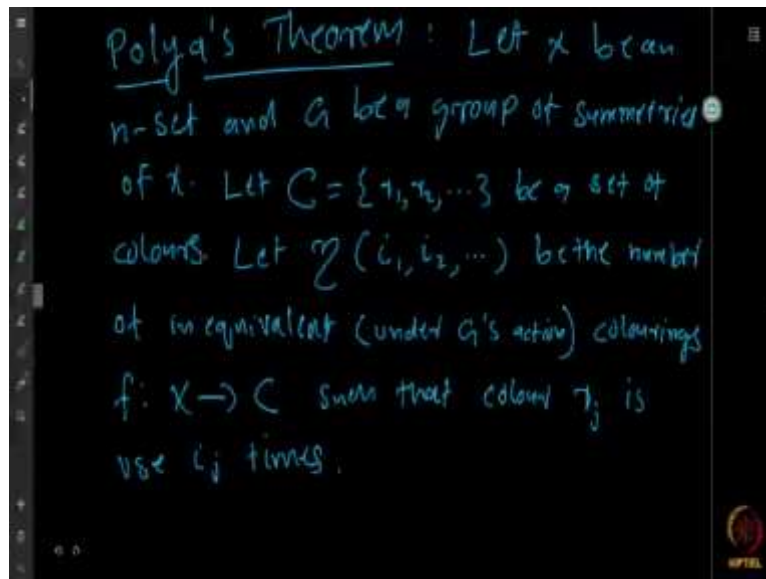 Polya's Theorem : Let x be an
n-set and G be a group of symmetries
of x. Let C = { r₁, r₂, ... } be a set of
colours. Let η (i₁, i₂, ...) be the number
of inequivalent (under G's action) colourings
f: X → C such that colour r_j is
use i_j times.
NPTEL